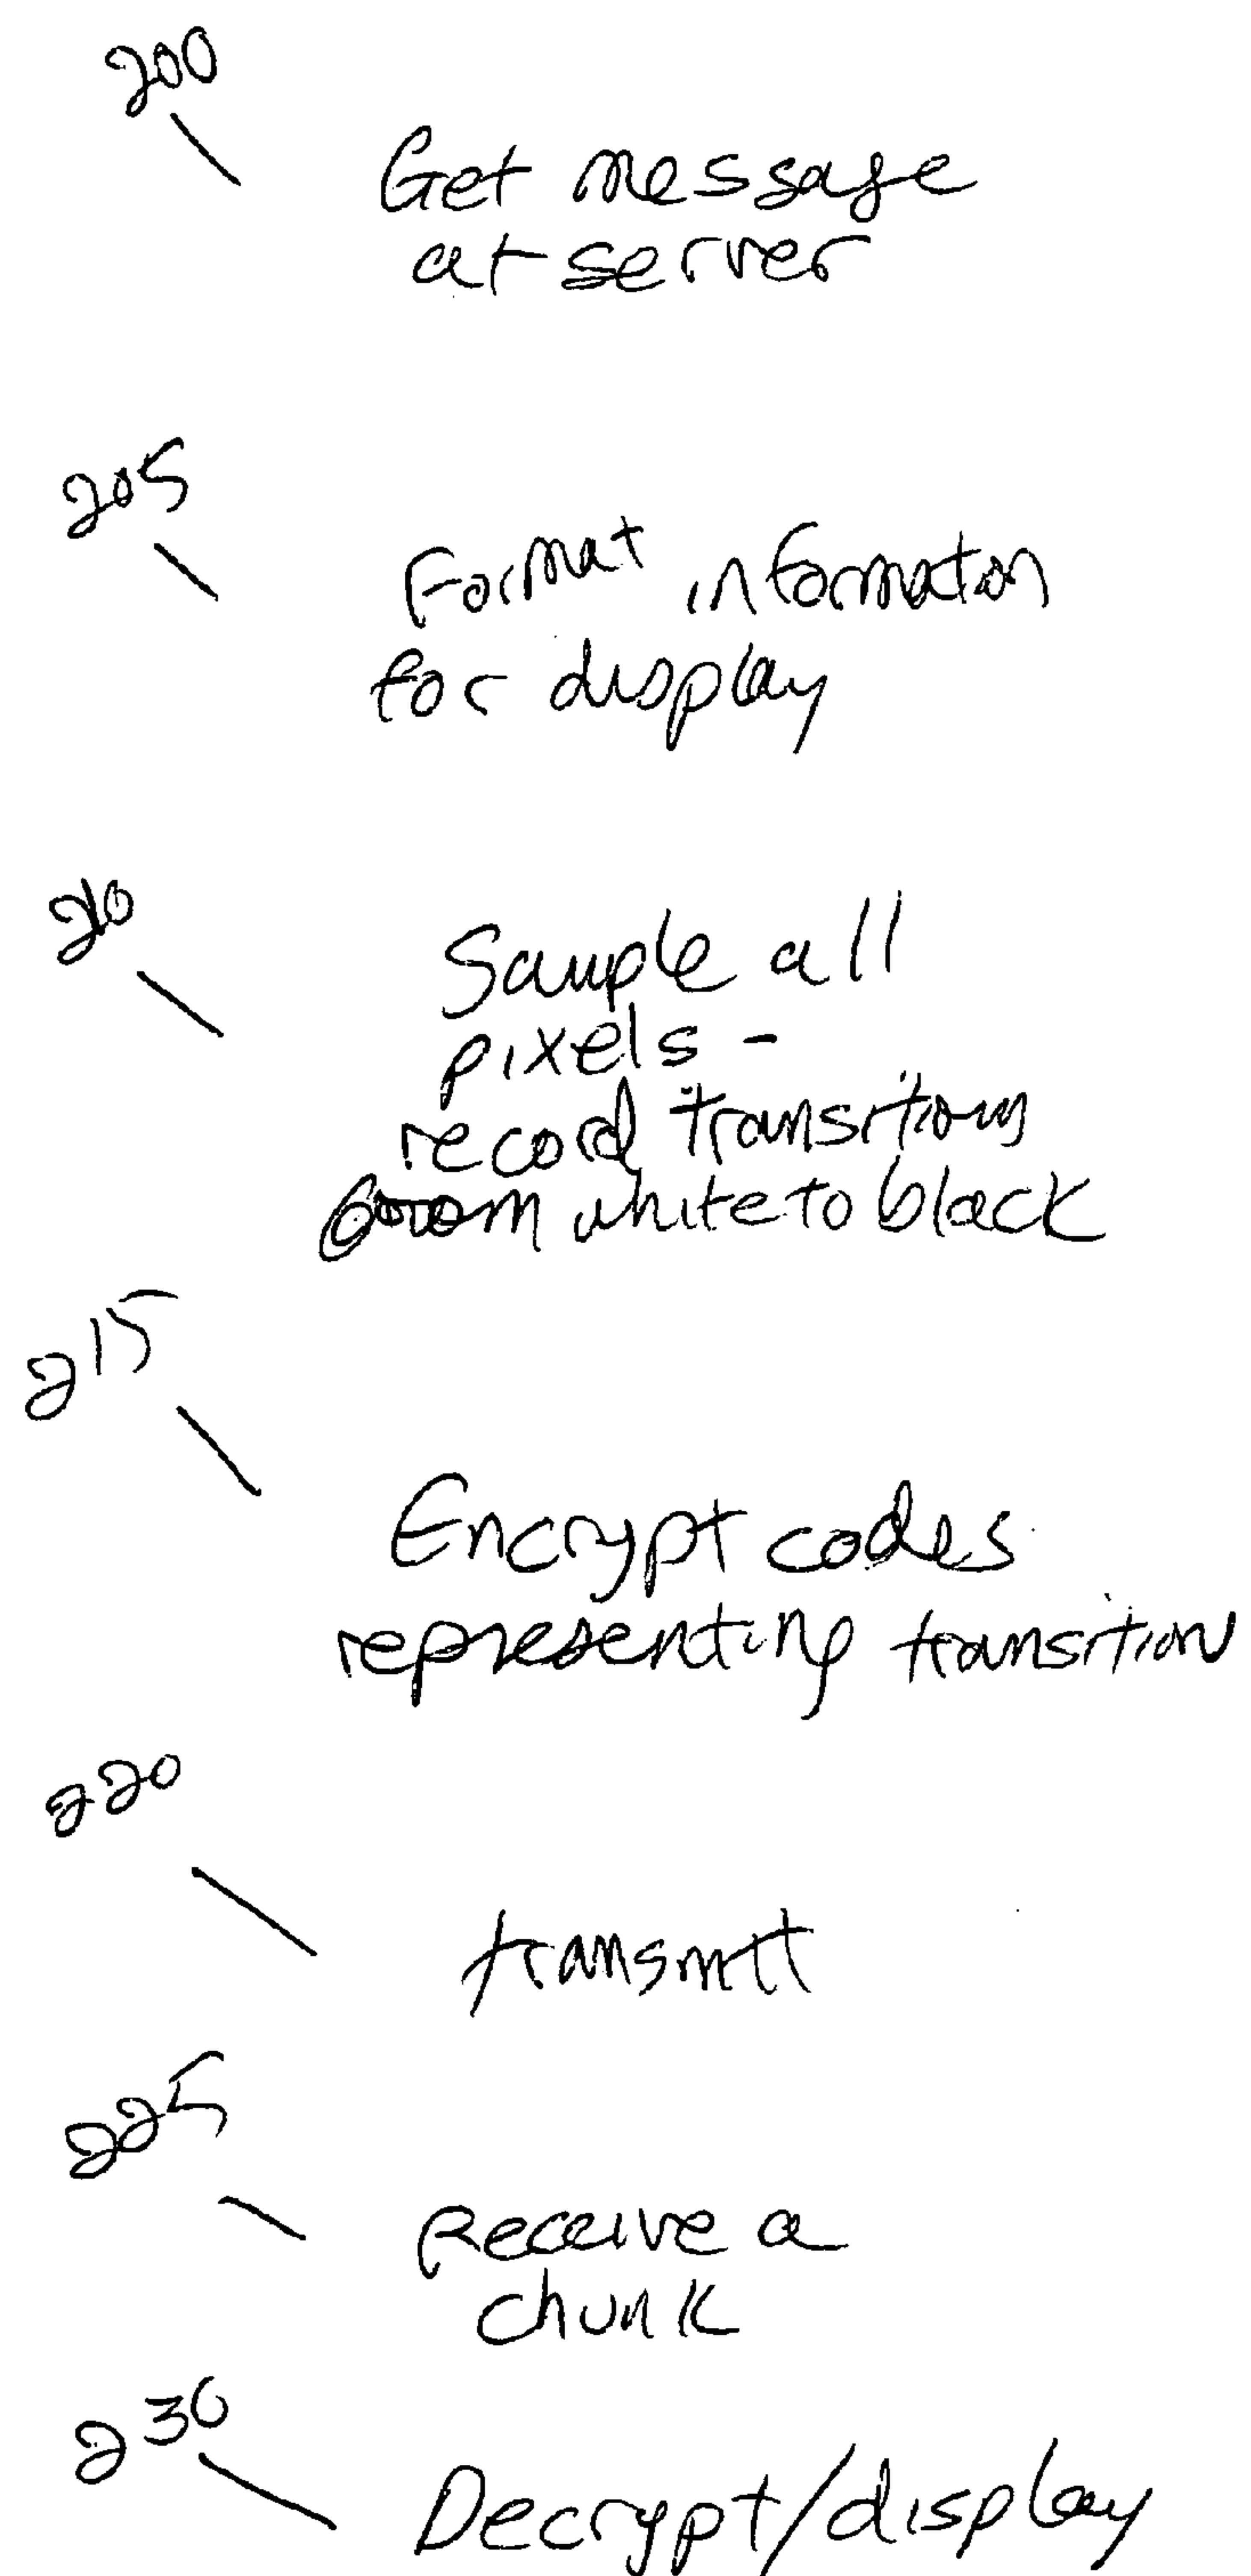 200
Get message
at server
205
Format information
for display
210
Sample all
pixels -
record transitions
from white to black
215
Encrypt codes
representing transition
220
transmit
225
Receive a
chunk
230
Decrypt/display